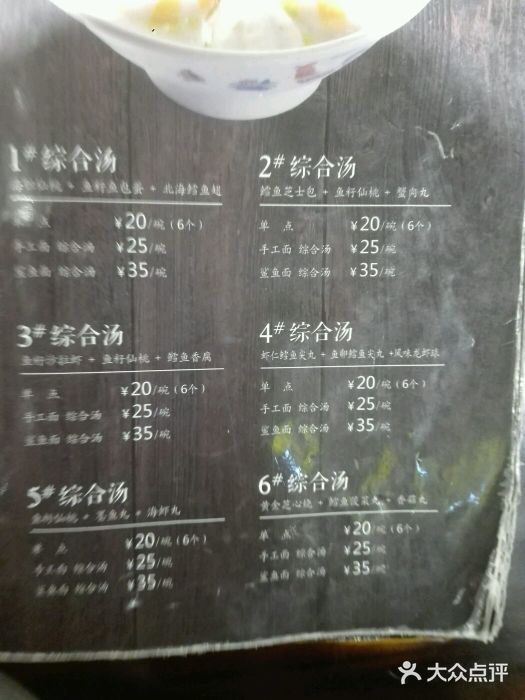 1# 综合汤
仙桃 + 鱼籽鱼包蛋 + 北海鳕鱼翅
点 ¥20/碗(6个)
手工面 综合汤 ¥25/碗
鲨鱼面 综合汤 ¥35/碗
2# 综合汤
鳕鱼芝士包 + 鱼籽仙桃 + 蟹向丸
单 点 ¥20/碗(6个)
手工面 综合汤 ¥25/碗
鲨鱼面 综合汤 ¥35/碗
3# 综合汤
鱼籽沙拉虾 + 鱼籽仙桃 + 鳕鱼香腐
单 点 ¥20/碗(6个)
手工面 综合汤 ¥25/碗
鲨鱼面 综合汤 ¥35/碗
4# 综合汤
虾仁鳕鱼尖丸 + 鱼卵鳕鱼尖丸 +风味龙虾球
单 点 ¥20/碗(6个)
手工面 综合汤 ¥25/碗
鲨鱼面 综合汤 ¥35/碗
5# 综合汤
鱼籽仙桃 + 墨鱼丸 + 海虾丸
单 点 ¥20/碗(6个)
手工面 综合汤 ¥25/碗
鲨鱼面 综合汤 ¥35/碗
6# 综合汤
黄金芝心烧 + 鳕鱼菠菜丸 + 香菇丸
单 点 ¥20/碗(6个)
手工面 综合汤 ¥25/碗
鲨鱼面 综合汤 ¥35/碗
大众点评